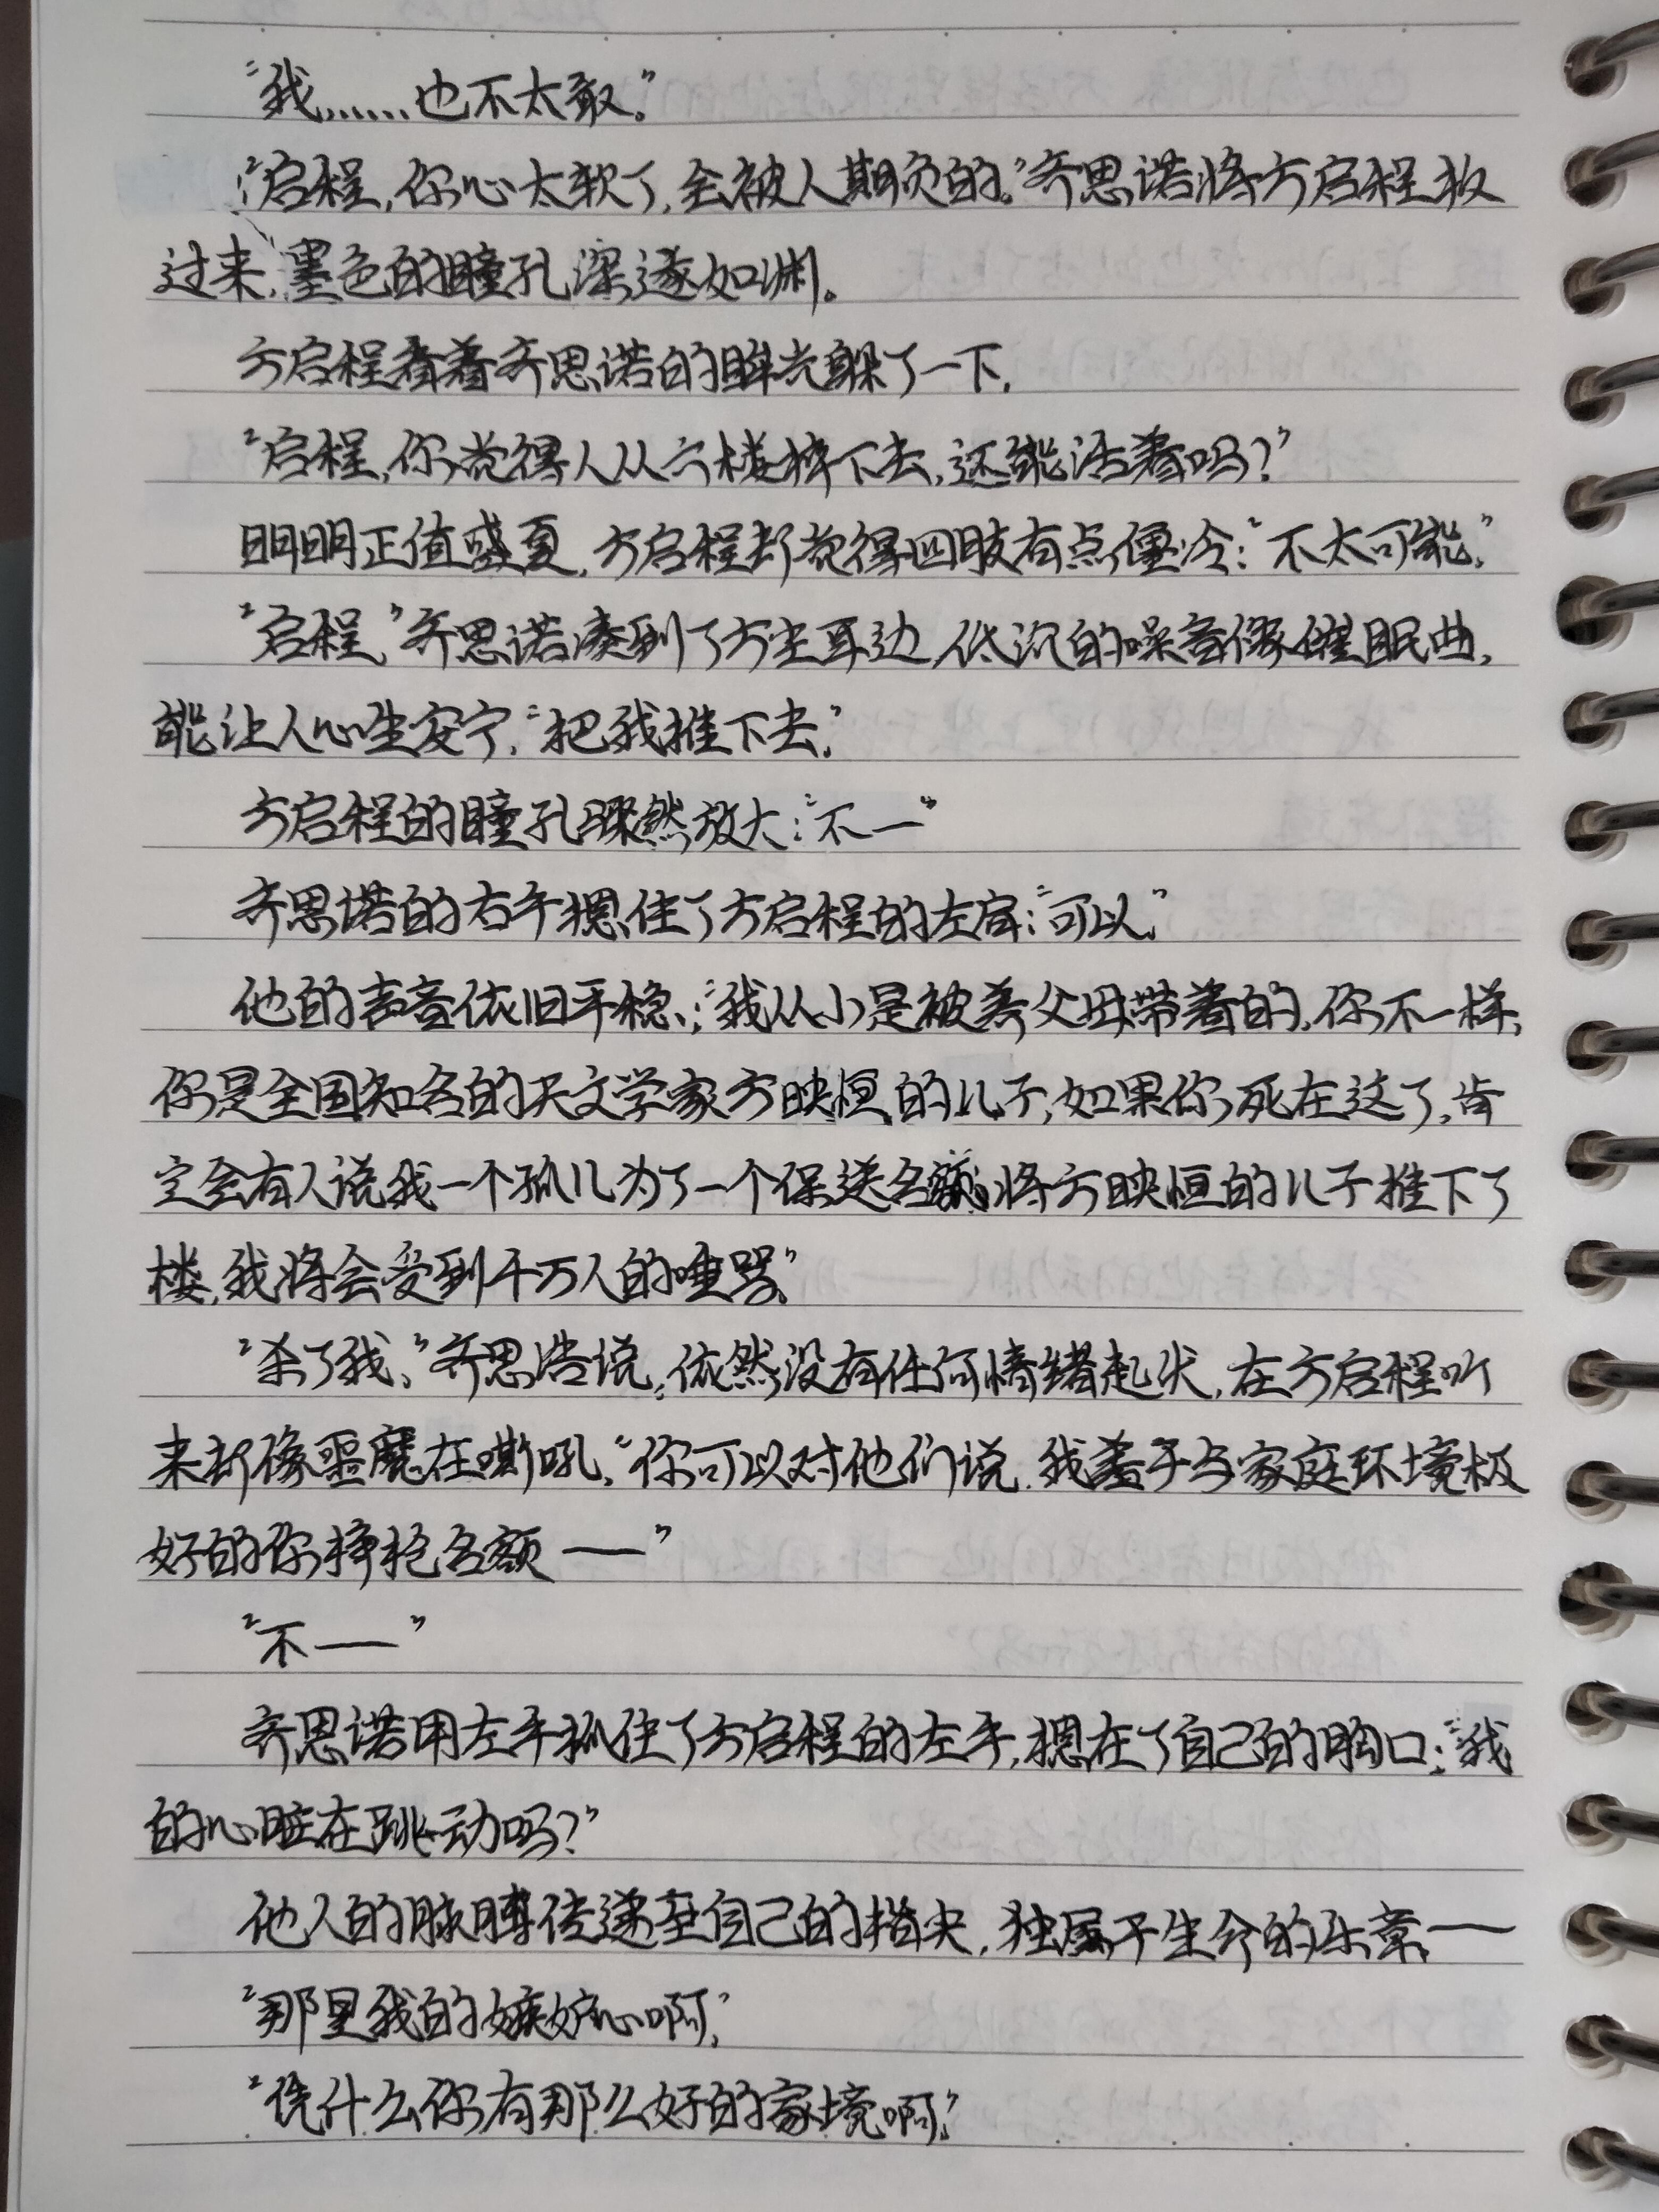 “我……也不太敢。”
“启程,你心太软了,会被人期负的。”齐思诺将方启程扳
过来,墨色的瞳孔深邃如渊。
方启程看着齐思诺的眸光躲了一下.
“启程,你觉得人从六楼摔下去,还能活着吗?”
明明正值盛夏,方启程却觉得四肢有点僵冷:“不太可能.”
“启程,”齐思诺凑到了方尘耳边,低沉的嗓音像催眠曲,
能让人心生安宁,“把我推下去.”
方启程的瞳孔骤然放大:“不—”
齐思诺的右手摁住了方启程的左肩:“可以.”
他的声音依旧平稳:“我从小是被养父母带着的,你不一样,
你是全国知名的天文学家方映恒的儿子,如果你死在这了,肯
定会有人说我一个孤儿为了一个保送名额,将方映恒的儿子推下了
楼,我将会受到千万人的唾骂.”
“杀了我,”齐思诺说,依然没有任何情绪起伏,在方启程听
来却像恶魔在嘶吼,“你可以对他们说,我羞于与家庭环境极
好的你挣抢名额——”
“不——”
齐思诺用左手抓住了方启程的左手,摁在了自己的胸口:“我
的心脏在跳动吗?”
他人的脉搏传递至自己的指尖,独属于生命的乐章——
“那里我的嫉妒心啊,”
“凭什么你有那么好的家境啊,”